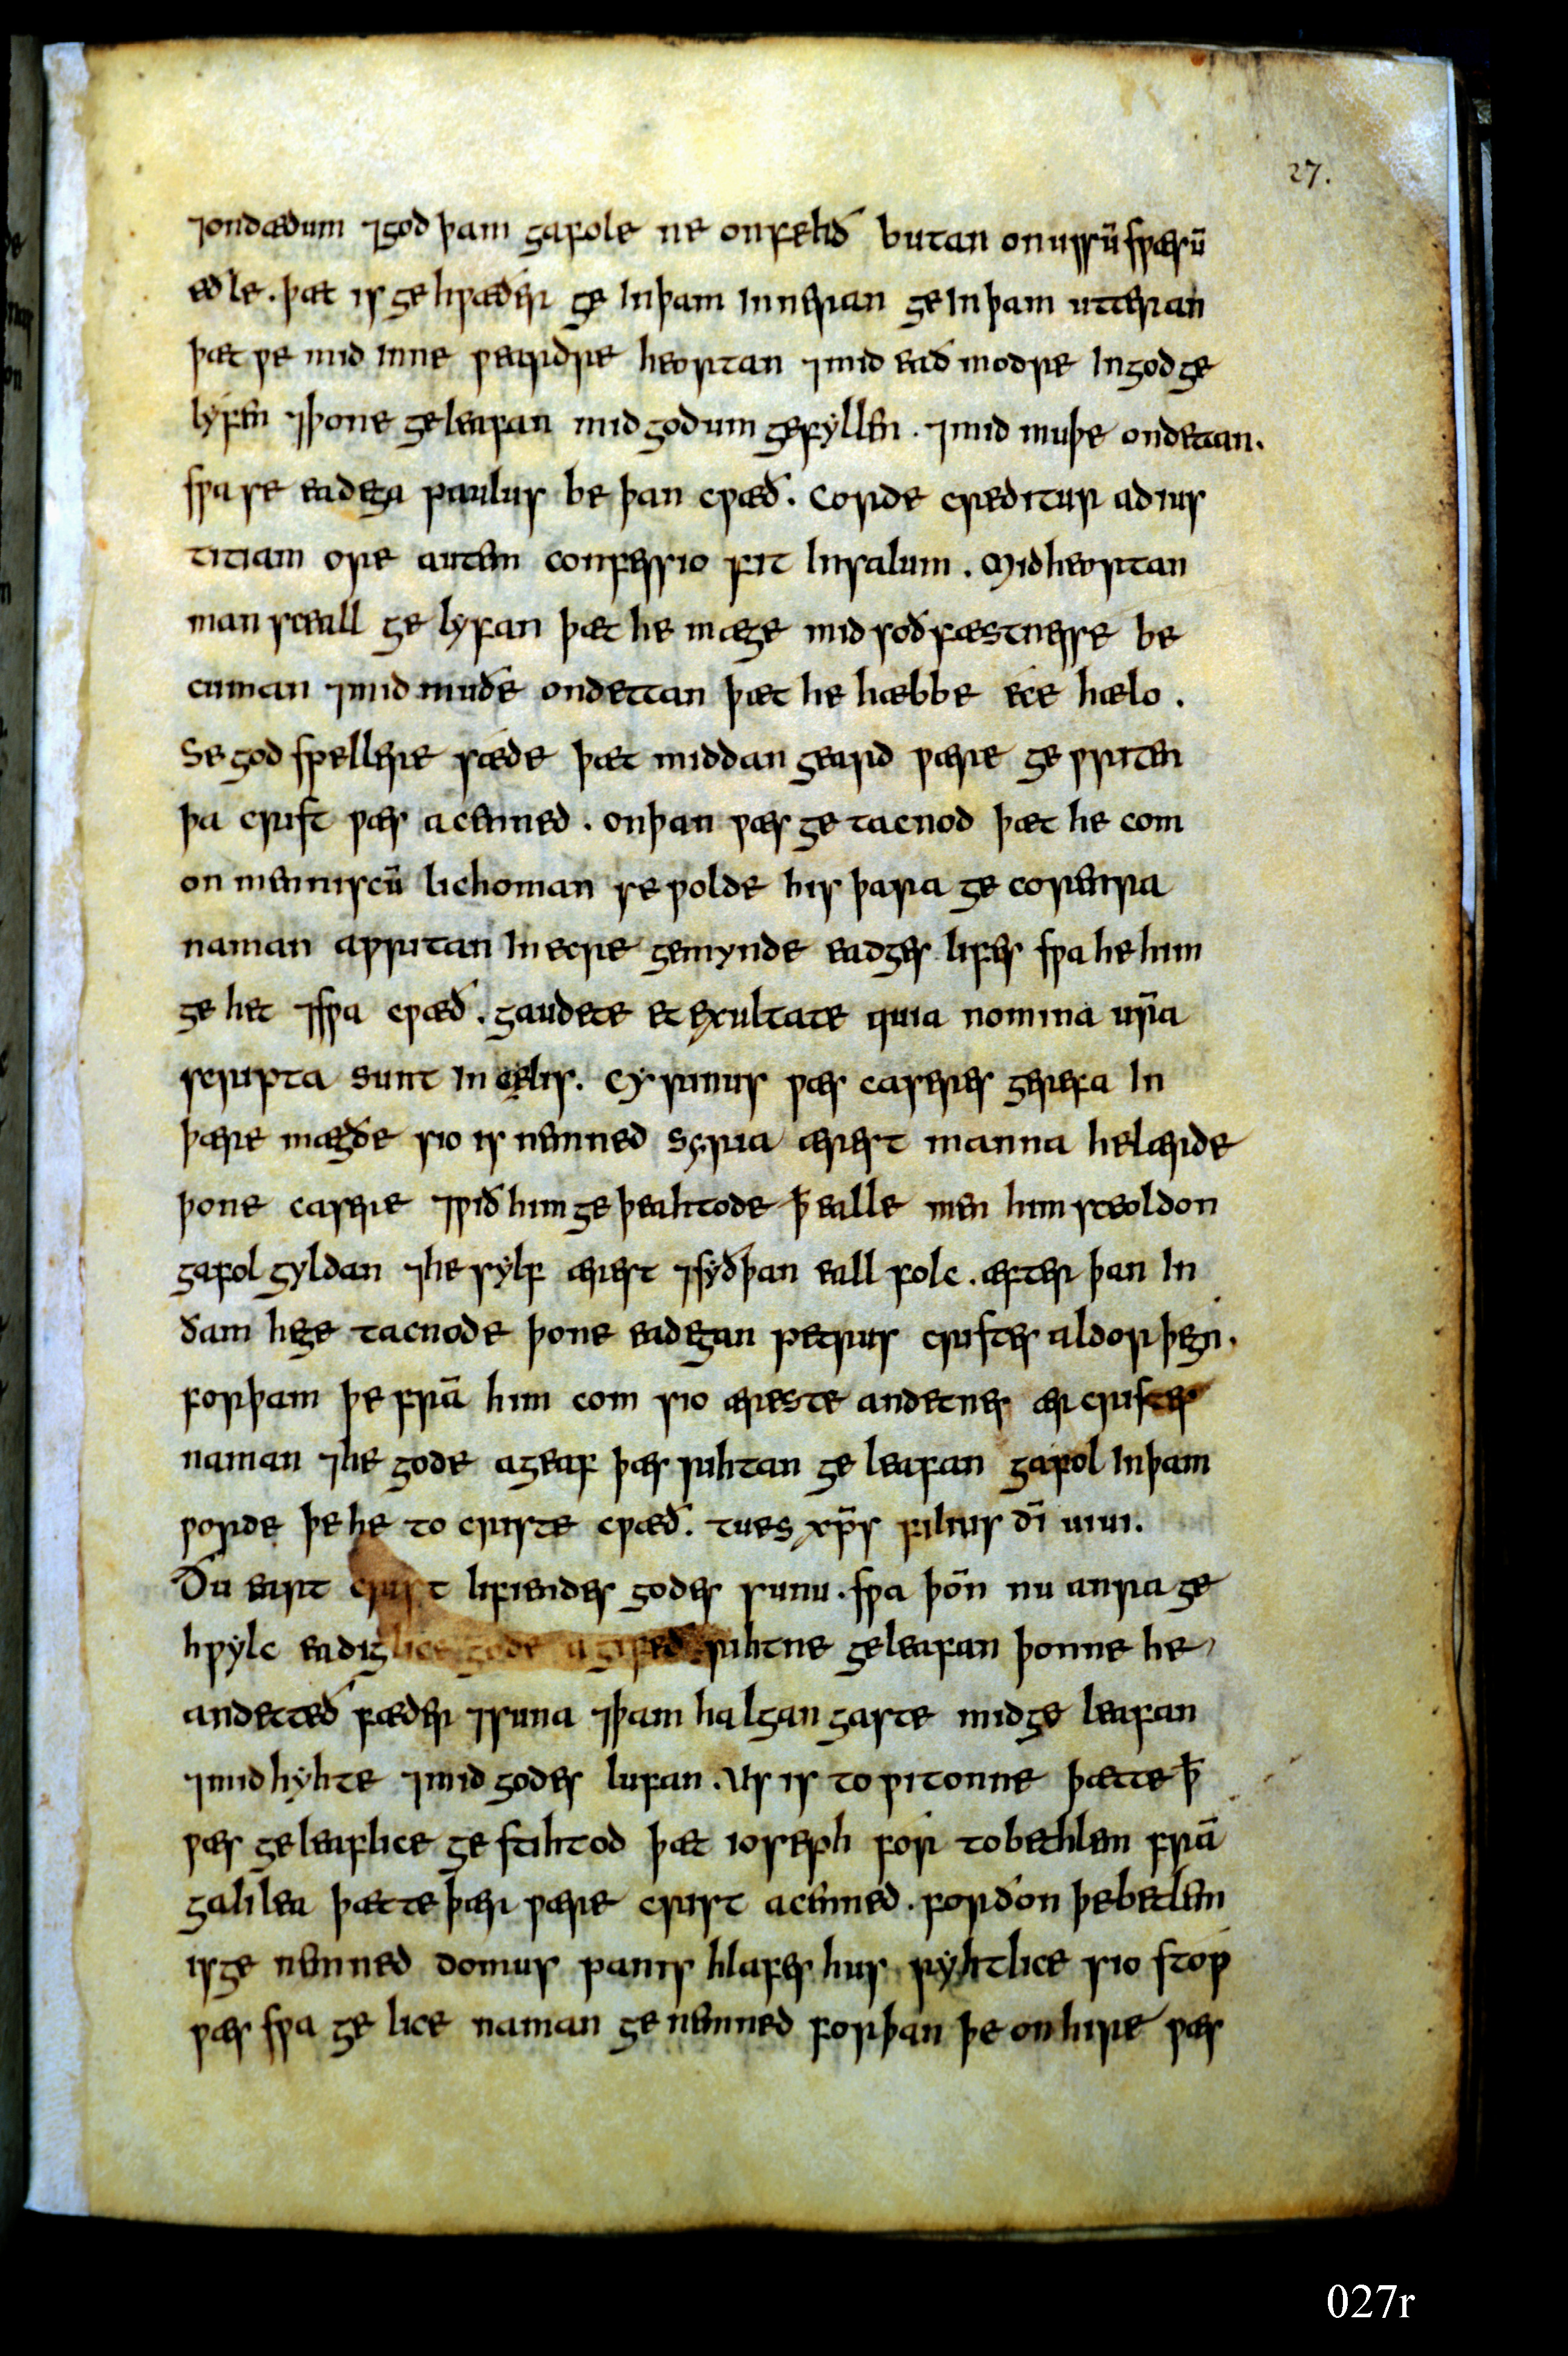 27.
⁊ondædum ⁊god þam gafole ne onfehð butan onussū swæsū
eðle. þæt is gehwæðer ge inþam inneran geinþam utteran
þæt we mid inne weardre heortan ⁊mid eaðmodre ingod ge
lyfen ⁊þone geleafan midgodum gefyllen. ⁊mid muþe ondettan.
swa se eadega paulus be þan cwæð. Corde creditur adius
titiam ore autem confessio fit insalum. Midheortan
man sceall ge lyfan þæt he mæge mid soðfæstnesse be
cuman ⁊mid muðe ondettan þæt he hæbbe ece hælo.
Se godspellere sæde þæt middangeard wære ge writen
þa crist wæs acenned. onþan wæs ge tacnod þæt he com
on menniscū lichoman se wolde his þara ge corenra
naman awritan in ecre gemynde eadges lifes swa he him
ge het ⁊swa cwæð. gaudete et exultate quia nomina ur̄a
scripta sunt in cęlis. Cyrinus wæs caseres gerefa in
þære mægðe sio is nemned syria ærest manna helærde
þone casere ⁊wið him ge þeahtode ꝥ ealle men him sceoldon
gafol gyldan ⁊he sylf ærest ⁊syðþan eall folc. æfter þan in
ðam hege tacnode þone eadegan petrus cristes aldorþegn.
forþam þe frā him com sio æreste andetnes ær cristes
naman ⁊he gode ageaf þæs rihtan ge leafan gafol inþam
worde þe he to criste cwæð. tues xp̄s filius dī uiui.
Ðu eart crist lifiendes godes sunu. swa þōn nu anra ge
hwylc eadiglice gode agifeð rihtne geleafan þonne he
andetteð fæder ⁊suna ⁊þam halgan gaste midge leafan
⁊mid hyhte ⁊mid godes lufan. Us is to witonne þætte ꝥ
wæs geleaflice ge stihtod þæt ioseph for tobethlem frā
galilea þætte þær wære crist acenned. forðon þebetlem
isge nemned domus panis hlafes hus ryhtlice sio stow
wæs swa ge lice naman ge nemned forþan þe onhire wæs
027r